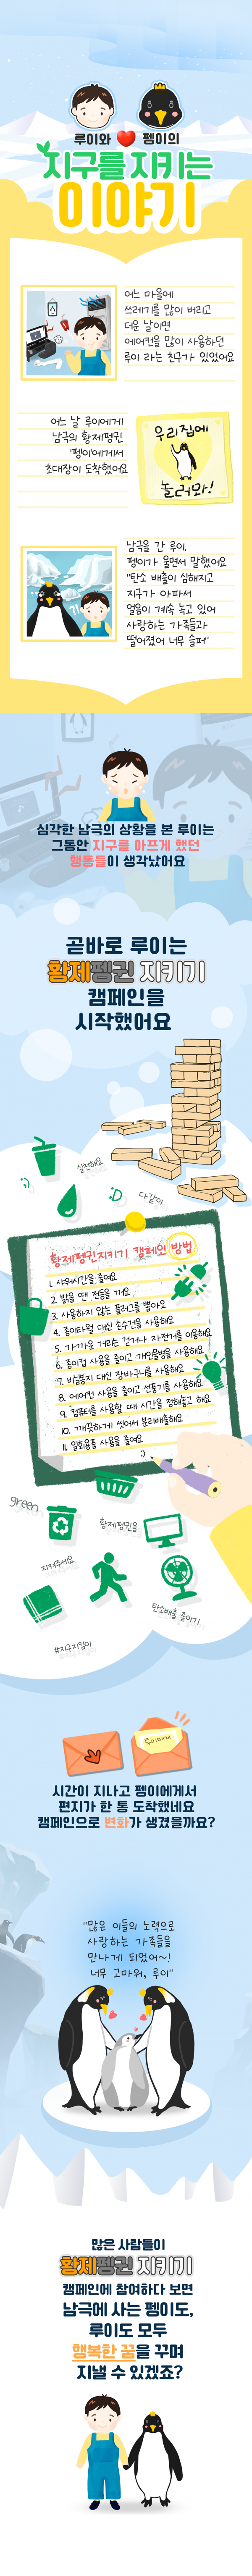 루이와 펭이의
지구를 지키는
이야기
어느 마을에
쓰레기를 많이 버리고
더운 날이면
에어컨을 많이 사용하던
루이 라는 친구가 있었어요
어느 날 루이에게
남극의 황제펭귄
'펭이'에게서
초대장이 도착했어요
우리집에
놀러와!
남극을 간 루이.
펭이가 울면서 말했어요
"탄소 배출이 심해지고
지구가 아파서
얼음이 계속 녹고 있어
사랑하는 가족들과
떨어졌어 너무 슬퍼"
심각한 남극의 상황을 본 루이는
그동안 지구를 아프게 했던
행동들이 생각났어요
곧바로 루이는
황제펭귄 지키기
캠페인을
시작했어요
실천해요
다같이
:)
:D
황제펭귄지키기 캠페인 방법
1. 샤워시간을 줄여요
2. 밝을 땐 전등을 꺼요
3. 사용하지 않는 플러그를 뽑아요
4. 종이타월 대신 손수건을 사용해요
5. 가까운 거리는 걷거나 자전거를 이용해요
6. 종이컵 사용을 줄이고 개인물병을 사용해요
7. 비닐봉지 대신 장바구니를 사용해요
8. 에어컨 사용을 줄이고 선풍기를 사용해요
9. 컴퓨터를 사용할 때 시간을 정해놓고 해요
10. 깨끗하게 씻어서 분리배출해요
11. 일회용품 사용을 줄여요
:)
green
황제펭귄을
지켜주세요
탄소배출 줄이기
#지구지킴이
루이에게
시간이 지나고 펭이에게서
편지가 한 통 도착했네요
캠페인으로 변화가 생겼을까요?
"많은 이들의 노력으로
사랑하는 가족들을
만나게 되었어~!
너무 고마워, 루이"
많은 사람들이
황제펭귄 지키기
캠페인에 참여하다 보면
남극에 사는 펭이도,
루이도 모두
행복한 꿈을 꾸며
지낼 수 있겠죠?